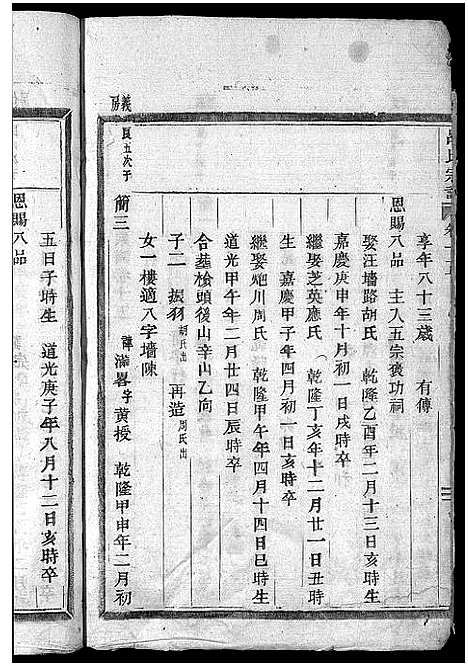 享年八十三歲 有傳
恩賜八品 主入五宗褒功祠
娶汪墻路胡氏 乾隆乙酉年二月十三日亥時生
嘉慶庚申年十月初一日戌時卒
繼娶芝英應氏 乾隆丁亥年十二月廿一日丑時
生 嘉慶甲子年四月初一日亥時卒
繼娶炮川周氏 乾隆甲午年四月十四日巳時生
道光甲午年二月廿四日辰時卒
合葬槍頭後山辛山乙向
子二 振羽胡氏出 再造周氏出
女一樓適八字墻陳
義房
良五次子
簡三 諱滿畧字黃授 乾隆甲申年二月初
五日子時生 道光庚子年八月十二日亥時卒
恩賜八品
呂氏宗譜